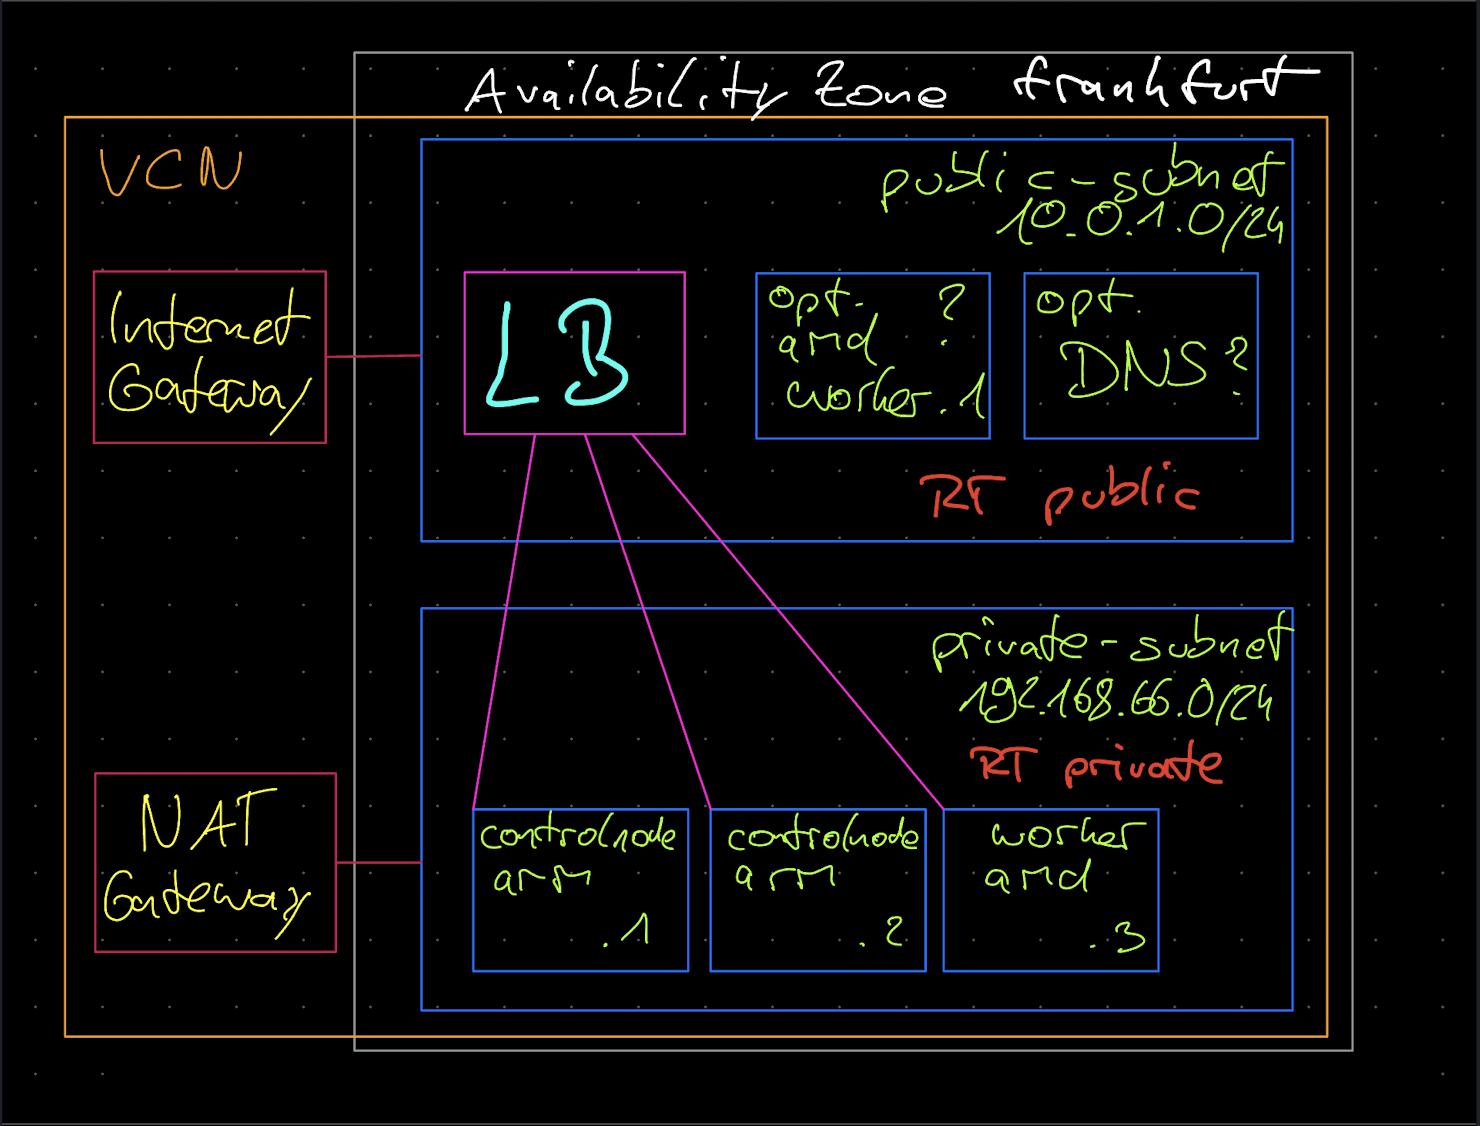 Availability Zone frankfurt
VCN
public-subnet
10.0.1.0/24
Internet
Gateway
LB
opt. ?
amd
worker .1
opt.
DNS?
RT public
private-subnet
192.168.66.0/24
RT private
NAT
Gateway
controlnode
arm
.1
controlnode
arm
.2
worker
amd
.3